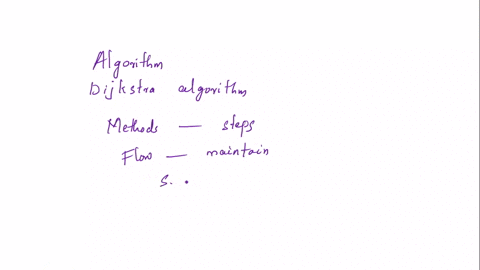 Algorithm
Dijkstra algorithm
Methods — steps
Flow — maintain
S.